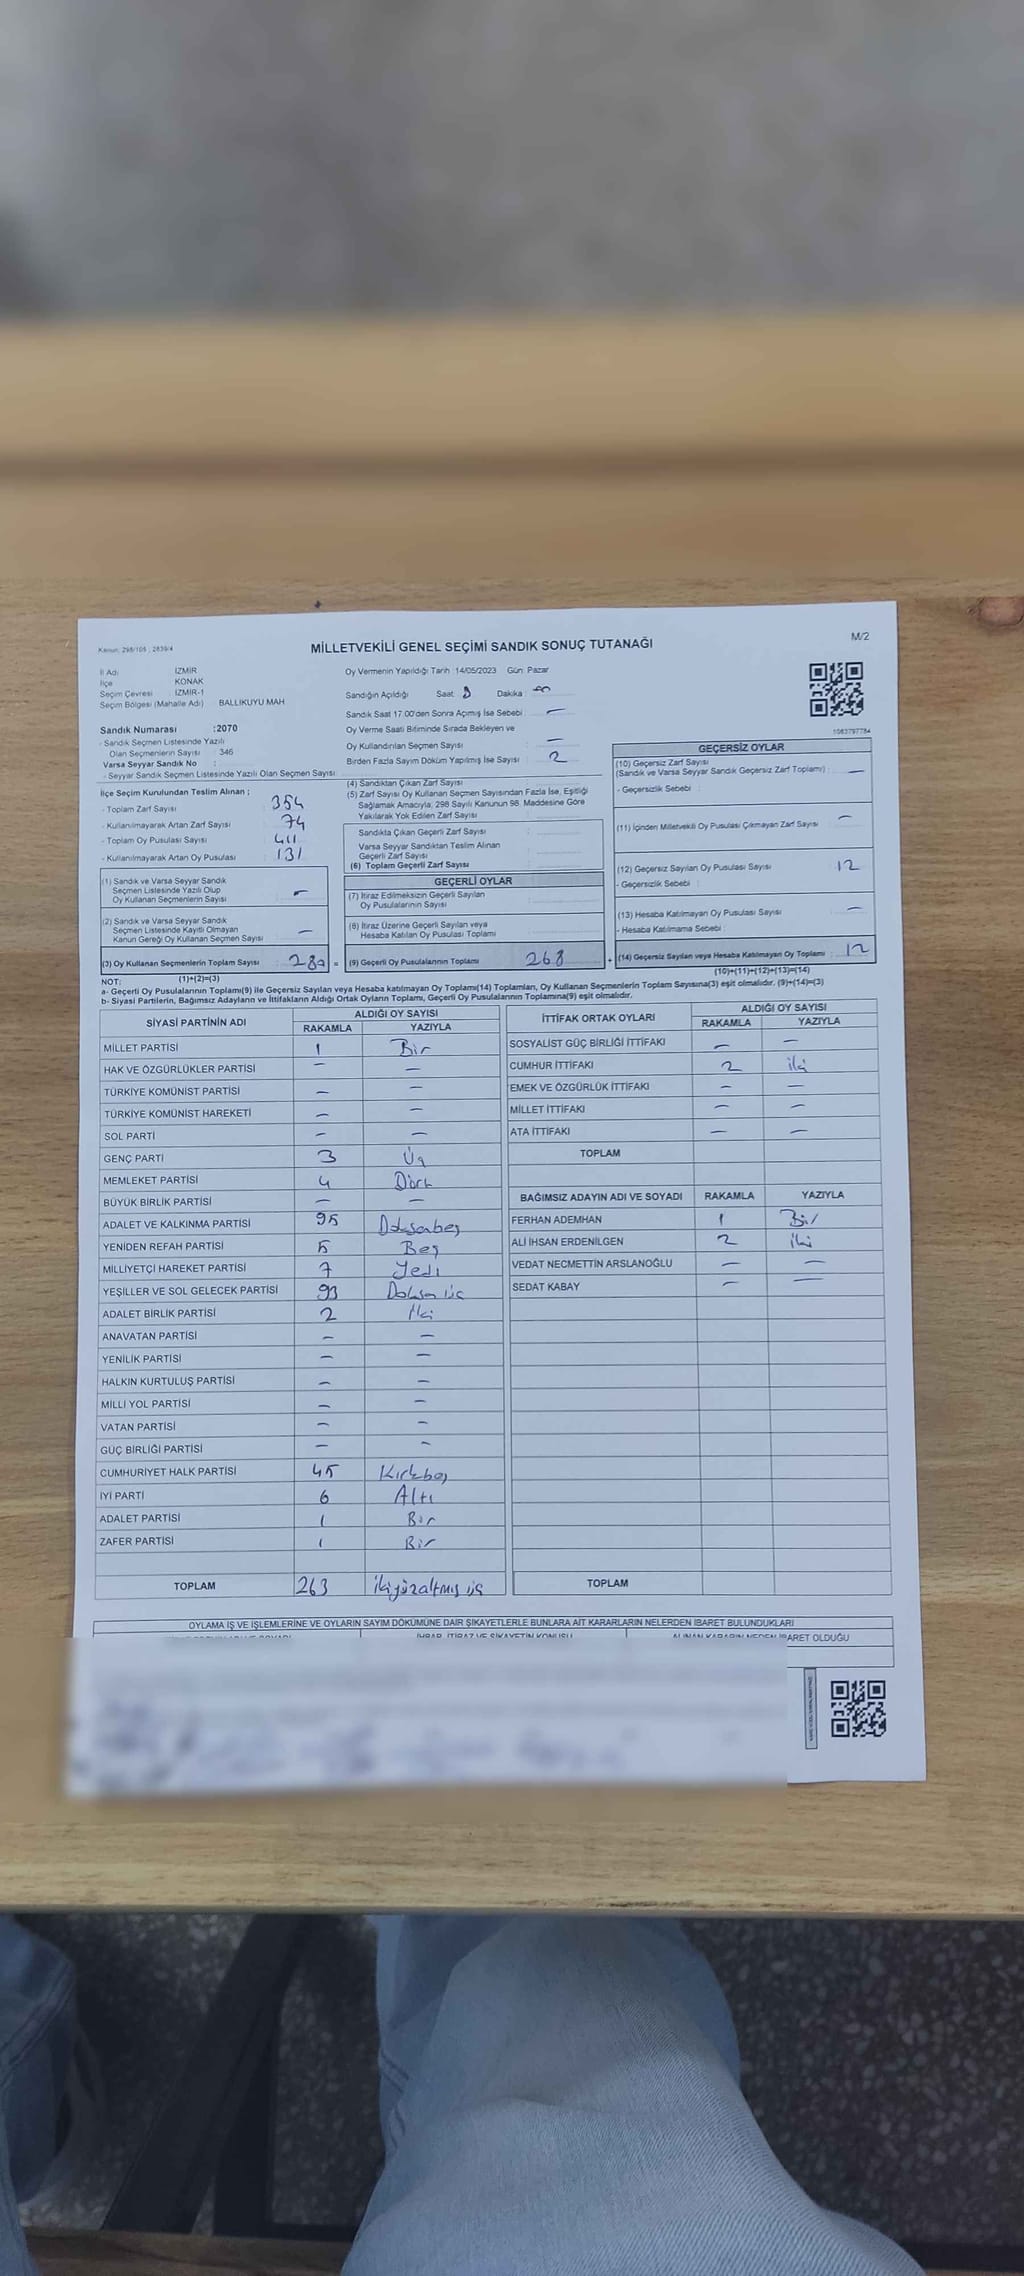 Kanun: 298/105 ; 2839/4
MİLLETVEKİLİ GENEL SEÇİMİ SANDIK SONUÇ TUTANAĞI
M/2
İl Adı İZMİR
İlçe KONAK
Seçim Çevresi İZMİR-1
Seçim Bölgesi (Mahalle Adı) BALLIKUYU MAH
Sandık Numarası :2070
- Sandık Seçmen Listesinde Yazılı
Olan Seçmenlerin Sayısı : 346
Varsa Seyyar Sandık No :
- Seyyar Sandık Seçmen Listesinde Yazılı Olan Seçmen Sayısı :
Oy Vermenin Yapıldığı Tarih :14/05/2023 Gün: Pazar
Sandığın Açıldığı Saat : Dakika :
Sandık Saat 17:00'den Sonra Açmış İse Sebebi : —
Oy Verme Saati Bitiminde Sırada Bekleyen ve
Oy Kullandırılan Seçmen Sayısı : —
Birden Fazla Sayım Döküm Yapılmış İse Sayısı : 2
1083797784
İlçe Seçim Kurulundan Teslim Alınan ;
- Toplam Zarf Sayısı : 354
- Kullanılmayarak Artan Zarf Sayısı : 74
- Toplam Oy Pusulası Sayısı : 411
- Kullanılmayarak Artan Oy Pusulası : 131
(1) Sandık ve Varsa Seyyar Sandık
Seçmen Listesinde Yazılı Olup
Oy Kullanan Seçmenlerin Sayısı : —
(2) Sandık ve Varsa Seyyar Sandık
Seçmen Listesinde Kayıtlı Olmayan
Kanun Gereği Oy Kullanan Seçmen Sayısı : —
(3) Oy Kullanan Seçmenlerin Toplam Sayısı : 280 =
(1)+(2)=(3)
(4) Sandıktan Çıkan Zarf Sayısı :
(5) Zarf Sayısı Oy Kullanan Seçmen Sayısından Fazla İse, Eşitliği
Sağlamak Amacıyla; 298 Sayılı Kanunun 98. Maddesine Göre
Yakılarak Yok Edilen Zarf Sayısı :
Sandıkta Çıkan Geçerli Zarf Sayısı :
Varsa Seyyar Sandıktan Teslim Alınan
Geçerli Zarf Sayısı :
(6) Toplam Geçerli Zarf Sayısı :
GEÇERLİ OYLAR
(7) İtiraz Edilmeksizin Geçerli Sayılan
Oy Pusulalarının Sayısı :
(8) İtiraz Üzerine Geçerli Sayılan veya
Hesaba Katılan Oy Pusulası Toplamı :
(9) Geçerli Oy Pusulalarının Toplamı : 268 +
GEÇERSİZ OYLAR
(10) Geçersiz Zarf Sayısı
(Sandık ve Varsa Seyyar Sandık Geçersiz Zarf Toplamı) : —
- Geçersizlik Sebebi :
(11) İçinden Milletvekili Oy Pusulası Çıkmayan Zarf Sayısı : —
(12) Geçersiz Sayılan Oy Pusulası Sayısı : 12
- Geçersizlik Sebebi :
(13) Hesaba Katılmayan Oy Pusulası Sayısı : —
- Hesaba Katılmama Sebebi :
(14) Geçersiz Sayılan veya Hesaba Katılmayan Oy Toplamı : 12
(10)+(11)+(12)+(13)=(14)
NOT:
a- Geçerli Oy Pusulalarının Toplamı(9) ile Geçersiz Sayılan veya Hesaba katılmayan Oy Toplamı(14) Toplamları, Oy Kullanan Seçmenlerin Toplam Sayısına(3) eşit olmalıdır. (9)+(14)=(3)
b- Siyasi Partilerin, Bağımsız Adayların ve İttifakların Aldığı Ortak Oyların Toplamı, Geçerli Oy Pusulalarının Toplamına(9) eşit olmalıdır.
SİYASİ PARTİNİN ADI ALDIĞI OY SAYISI
RAKAMLA YAZIYLA
MİLLET PARTİSİ 1 Bir
HAK VE ÖZGÜRLÜKLER PARTİSİ — —
TÜRKİYE KOMÜNİST PARTİSİ — —
TÜRKİYE KOMÜNİST HAREKETİ — —
SOL PARTİ — —
GENÇ PARTİ 3 Üç
MEMLEKET PARTİSİ 4 Dört
BÜYÜK BİRLİK PARTİSİ — —
ADALET VE KALKINMA PARTİSİ 95 Doksanbeş
YENİDEN REFAH PARTİSİ 5 Beş
MİLLİYETÇİ HAREKET PARTİSİ 7 Yedi
YEŞİLLER VE SOL GELECEK PARTİSİ 93 Doksan üç
ADALET BİRLİK PARTİSİ 2 İki
ANAVATAN PARTİSİ — —
YENİLİK PARTİSİ — —
HALKIN KURTULUŞ PARTİSİ — —
MİLLİ YOL PARTİSİ — —
VATAN PARTİSİ — —
GÜÇ BİRLİĞİ PARTİSİ — —
CUMHURİYET HALK PARTİSİ 45 Kırkbeş
İYİ PARTİ 6 Altı
ADALET PARTİSİ 1 Bir
ZAFER PARTİSİ 1 Bir
TOPLAM 263 İkiyüzaltmış üç
İTTİFAK ORTAK OYLARI ALDIĞI OY SAYISI
RAKAMLA YAZIYLA
SOSYALİST GÜÇ BİRLİĞİ İTTİFAKI — —
CUMHUR İTTİFAKI 2 iki
EMEK VE ÖZGÜRLÜK İTTİFAKI — —
MİLLET İTTİFAKI — —
ATA İTTİFAKI — —
TOPLAM
BAĞIMSIZ ADAYIN ADI VE SOYADI RAKAMLA YAZIYLA
FERHAN ADEMHAN 1 Bir
ALİ İHSAN ERDENİLGEN 2 iki
VEDAT NECMETTİN ARSLANOĞLU — —
SEDAT KABAY — —
TOPLAM
OYLAMA İŞ VE İŞLEMLERİNE VE OYLARIN SAYIM DÖKÜMÜNE DAİR ŞİKAYETLERLE BUNLARA AİT KARARLARIN NELERDEN İBARET BULUNDUKLARI
İHBAR, İTİRAZ VE ŞİKAYETİN KONUSU ALINAN KARARIN NEDEN İBARET OLDUĞU